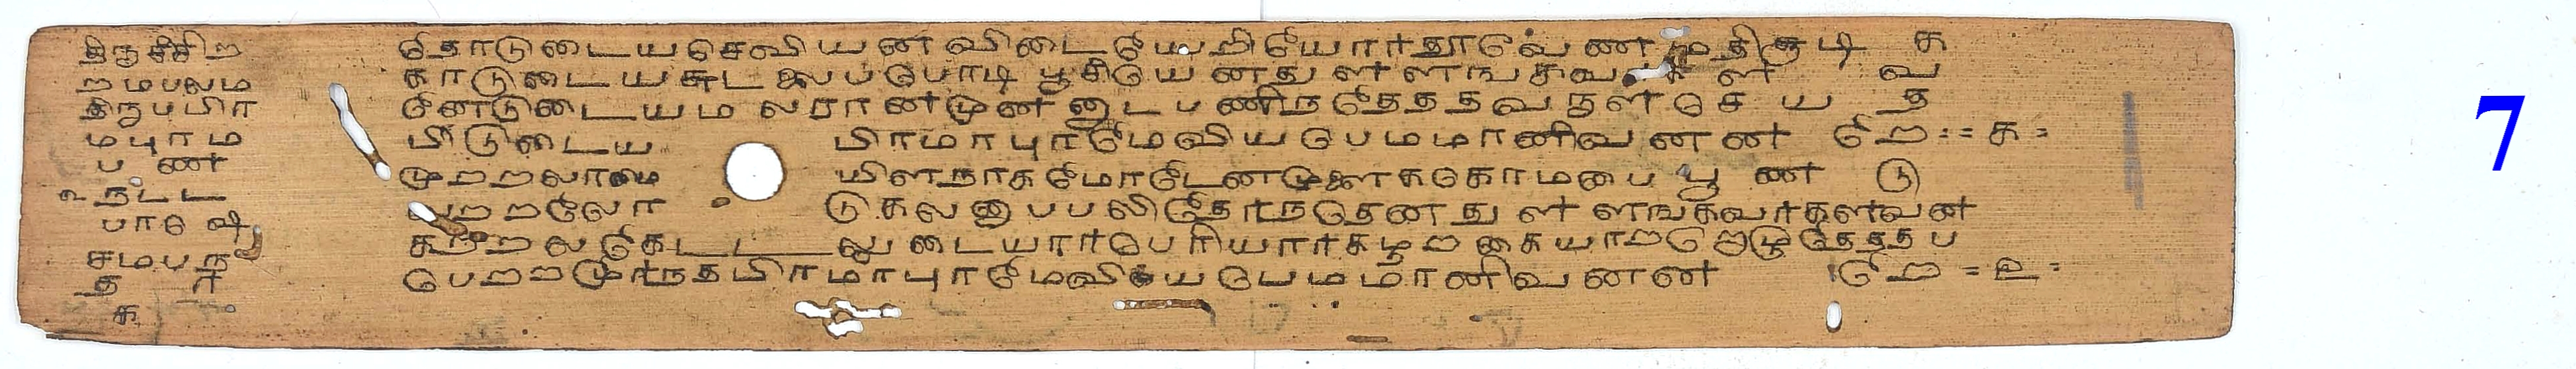 திருச்சிற
றமபலம
திருபபிர
மபுரம
ப ண
நடட
பாடை
சமபந
த ர
க
தோடுடையசெவியன விடையேறியோரதூவெண மதிசூடி க
காடுடையசுடலைபபொடி பூசியெனது ளளஙகவர க ள வ
னேடுடையமலரானமுனனைபபணிநதேதததவருளசெ ய த
பீடுடைய பிரமாபுரமேவியபெமமானிவனன றே = க =
முறறலாமை யிளநாகமோடேனமுளைககொமபவை பூ ண டு
வறறலோ டுகலனாபபலிதேரநதெனது ளளஙகவரகளவன
கறறலகேடடலுடையாரபெரியாரகழறகையாறறொழுதேததப
பெறறமூரநதபிரமாபுரமேவியபெமமானிவனன றே = உ =
7